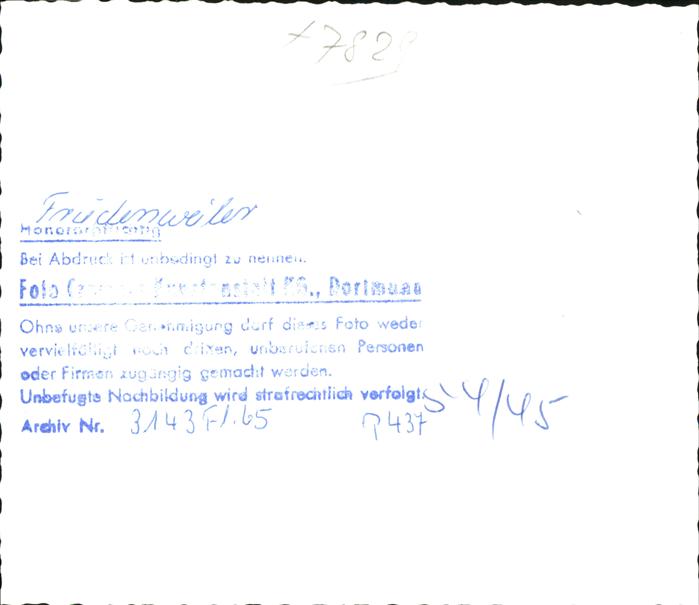 7829
Friedenweiler
Honorarpflichtig
Bei Abdruck ist unbedingt zu nennen:
Foto Kunstanstalt KG., Dortmund
Ohne unsere Genehmigung darf dieses Foto weder
vervielfältigt noch dritten, unberufenen Personen
oder Firmen zugängig gemacht werden.
Unbefugte Nachbildung wird strafrechtlich verfolgt.
Archiv Nr. 3143 P 437